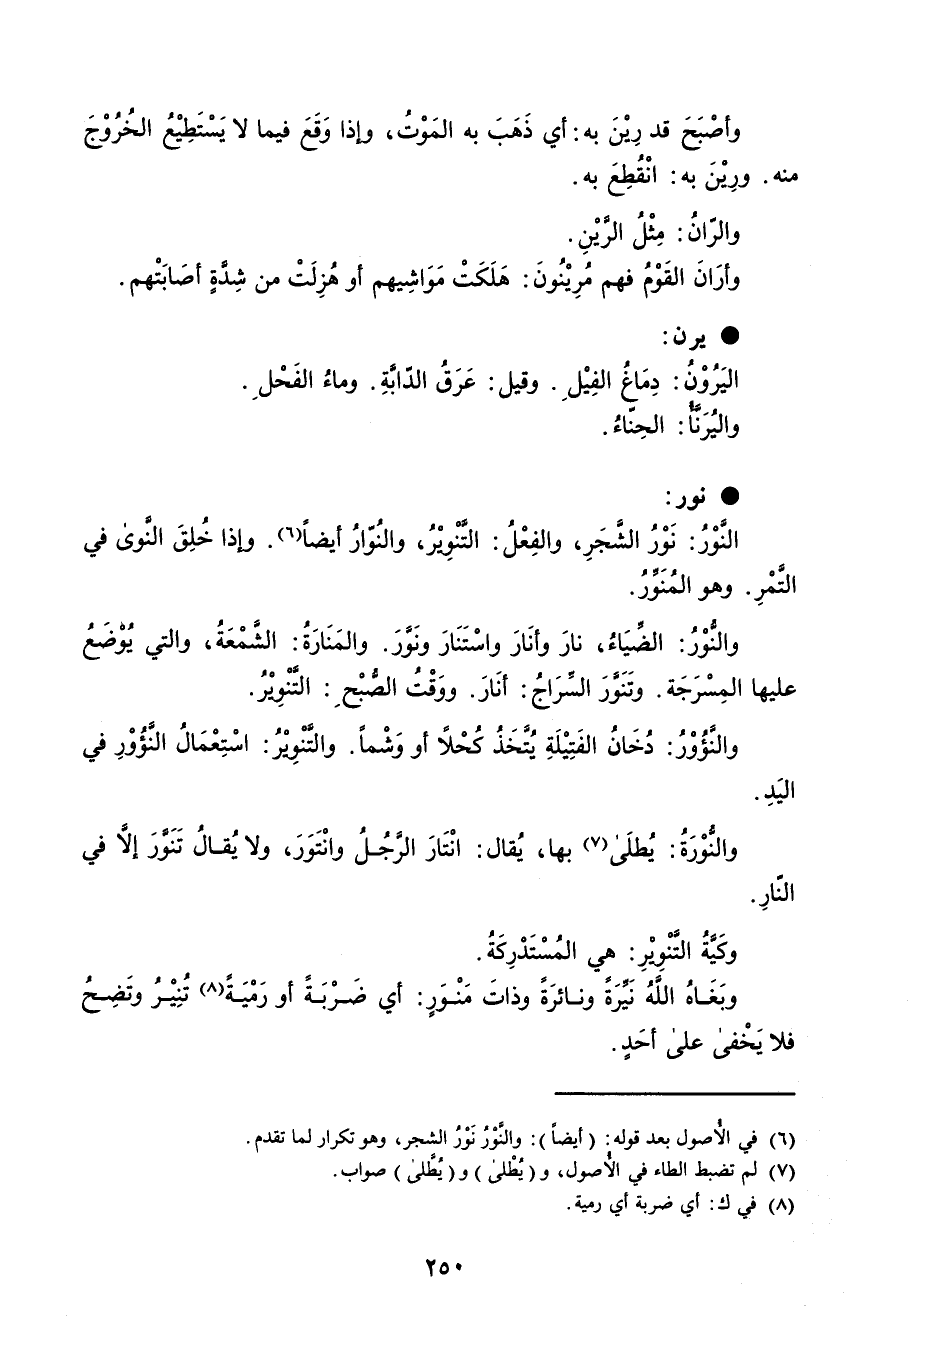 وأصْبَحَ قد رِيْنَ به: أي ذَهَبَ به المَوْتُ، وإذا وَقَعَ فيما لا يَسْتَطِيْعُ الخُرُوْجَ
منه. ورِيْنَ به: انْقُطِعَ به.
والرّانُ: مِثْلُ الرَّيْنِ.
وأرَانَ القَوْمُ فهم مُرِيْنُونَ: هَلَكَتْ مَوَاشِيهم أو هُزِلَتْ من شِدَّةٍ أصَابَتْهم.
● يرن:
اليَرُوْنُ: دِمَاغُ الفِيْلِ. وقيل: عَرَقُ الدّابَّةِ. وماءُ الفَحْلِ.
واليُرَنَّأُ: الحِنّاءُ.
● نور:
النَّوْرُ: نَوْرُ الشَّجَرِ، والفِعْلُ: التَّنْوِيْرُ، والنُّوّارُ أيضاً(٦). وإذا خُلِقَ النَّوىٰ في
التَّمْرِ. وهو المُنَوِّرُ.
والنُّوْرُ: الضِّيَاءُ، نارَ وأنَارَ واسْتَنَارَ ونَوَّرَ. والمَنَارَةُ: الشَّمْعَةُ، والتي يُوْضَعُ
عليها المِسْرَجَة. وتَنَوَّرَ السِّرَاجُ: أنَارَ. ووَقْتُ الصُّبْحِ: التَّنْوِيْرُ.
والنَّؤُوْرُ: دُخَانُ الفَتِيْلَةِ يُتَّخَذُ كُحْلًا أو وَشْماً. والتَّنْوِيْرُ: اسْتِعْمَالُ النَّؤُوْرِ في
اليَدِ.
والنُّوْرَةُ: يُطلَىٰ(٧) بها، يُقال: انْتَارَ الرَّجُـلُ وانْتَوَرَ، ولا يُقـالُ تَنَوَّرَ إلَّا في
النّارِ.
وكَيَّةُ التَّنْوِيْرِ: هي المُسْتَدْرِكَةُ.
وبَغَـاهُ اللَّهُ نَيِّرَةً ونـائرَةً وذاتَ مَنْـوَرٍ: أي ضَـرْبَـةً أو رَمْيَـةً(٨) تُنِيْـرُ وتَضِـحُ
فلا يَخْفىٰ علىٰ أحَدٍ.
(٦) في الأصول بعد قوله: (أيضاً): والنَّوْرُ نَوْرُ الشجر، وهو تكرار لما تقدم.
(٧) لم تضبط الطاء في الأصول، و(يُطْلىٰ) و(يُطَّلىٰ) صواب.
(٨) في ك: أي ضربة أي رمية.
٢٥٠